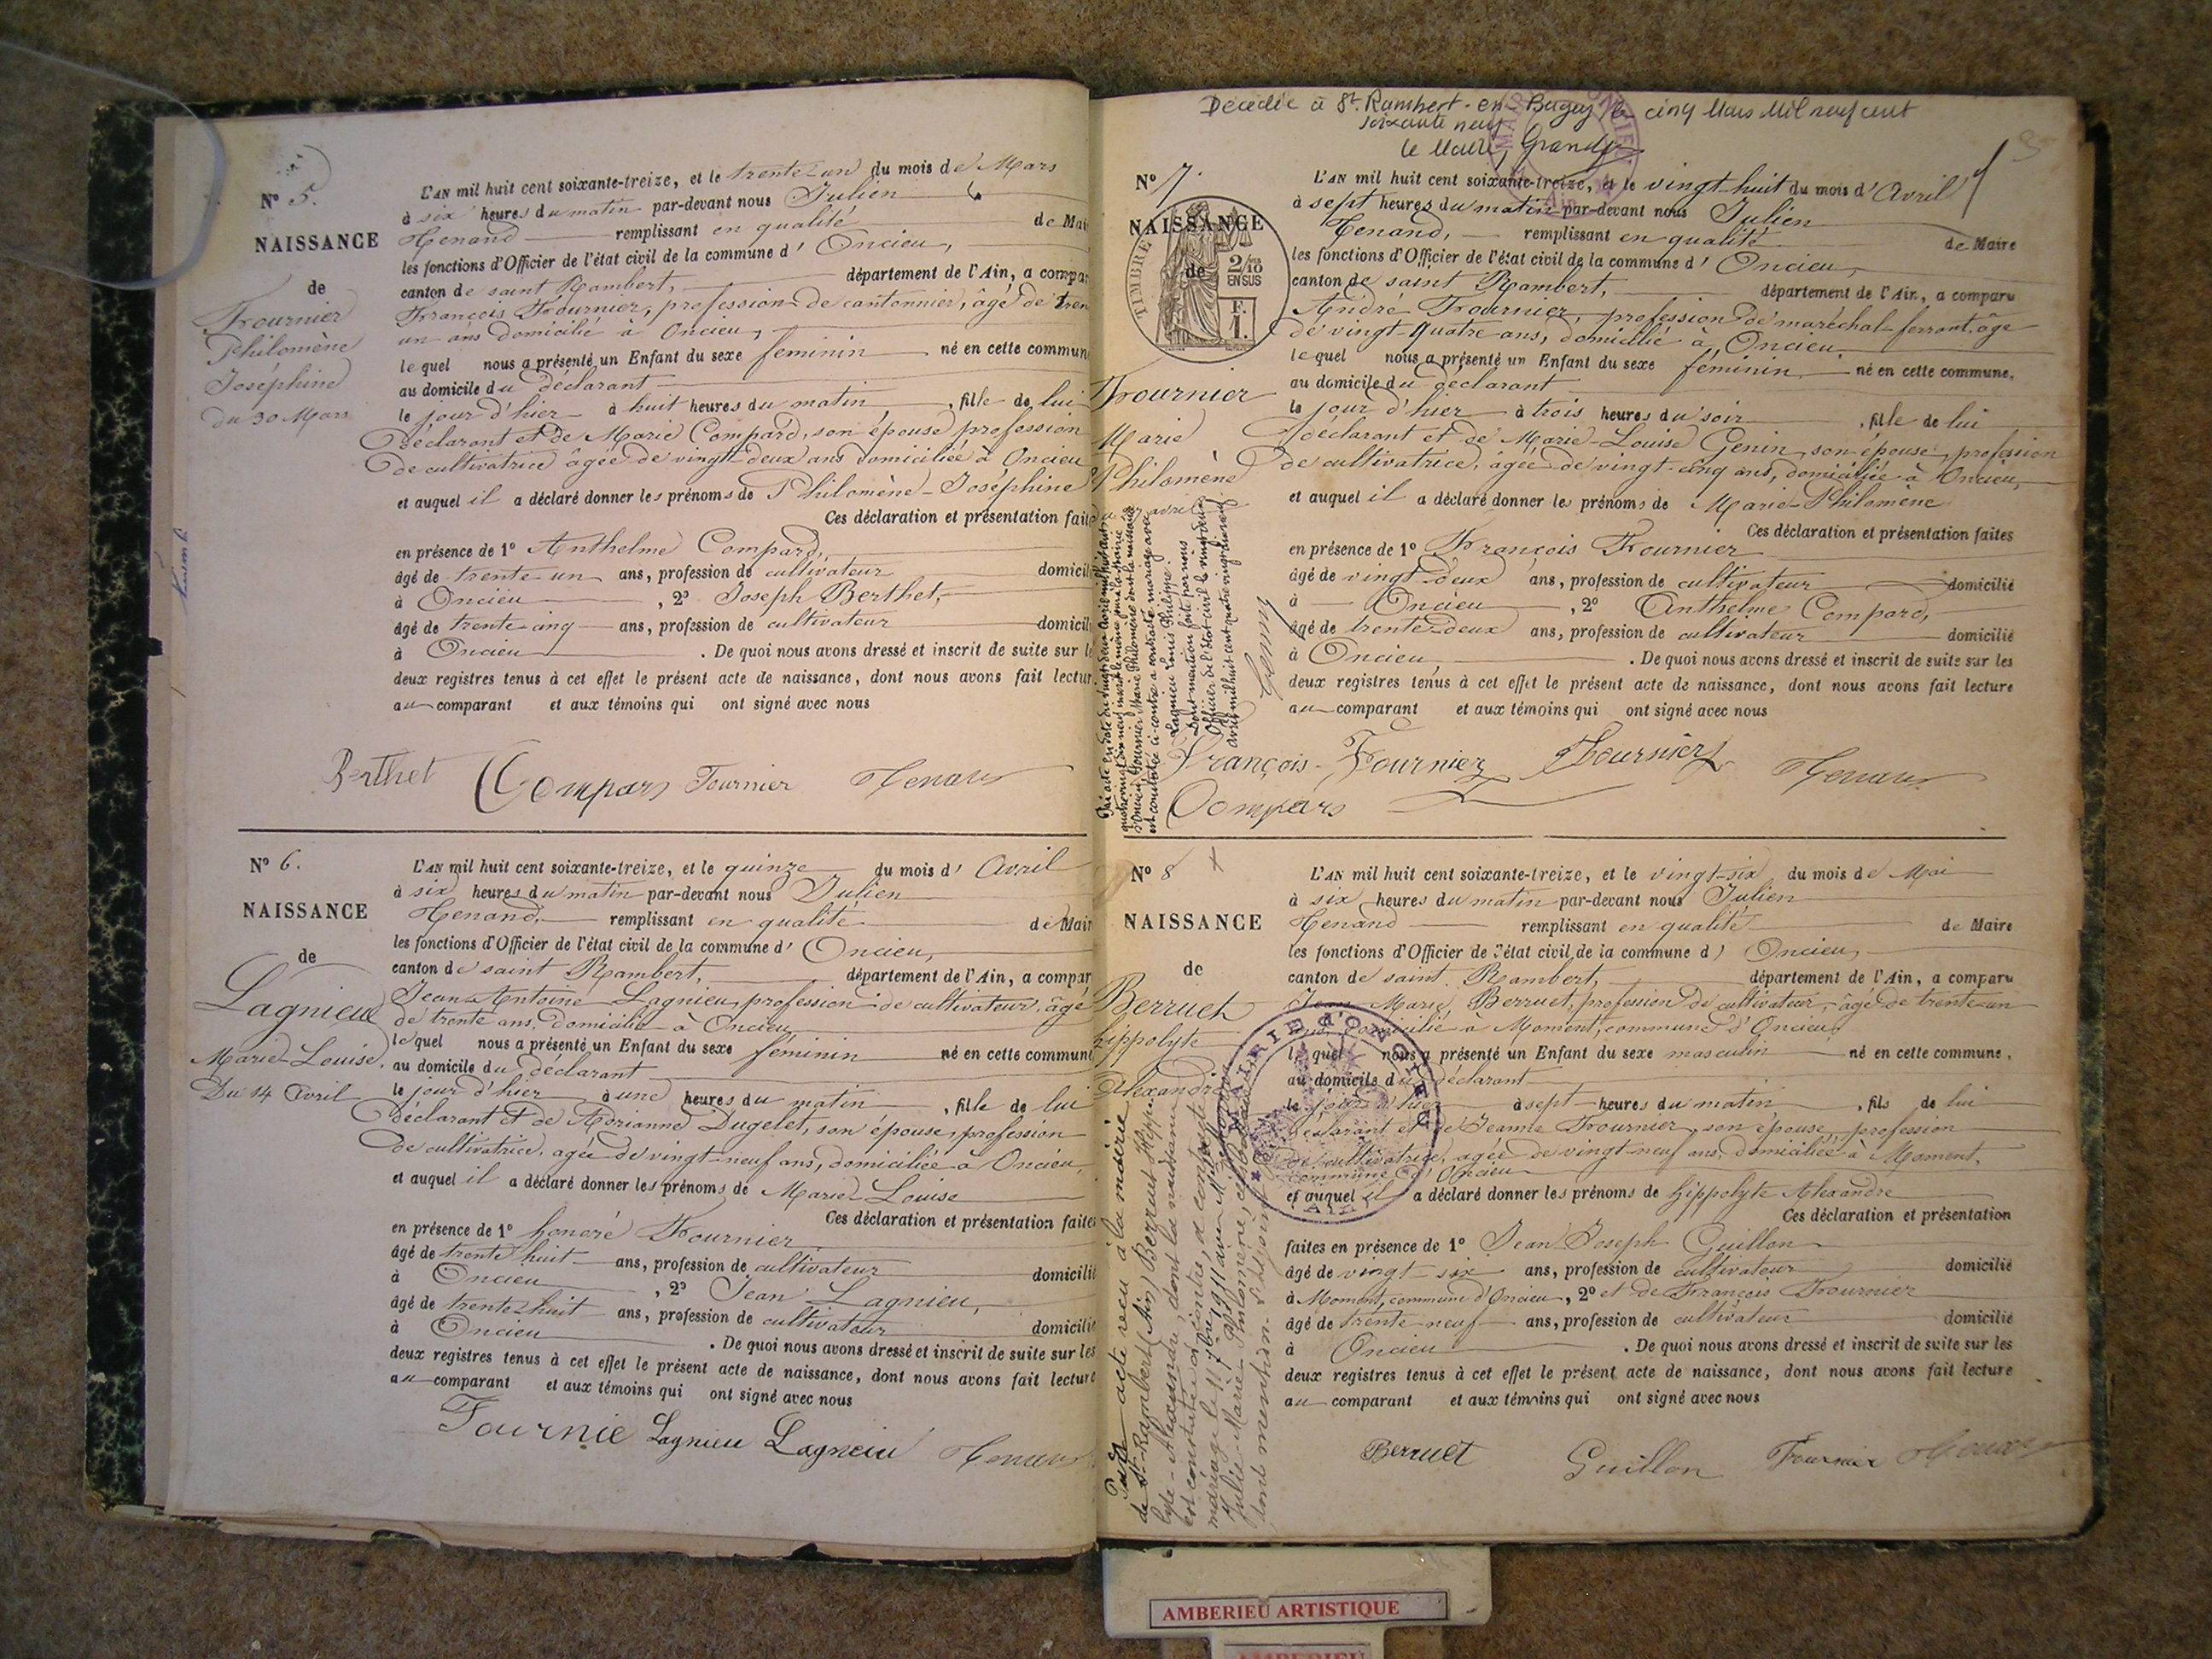 N° 5.
NAISSANCE
de
Fournier
Philomène
Joséphine
du 30 Mars
L'AN mil huit cent soixante-treize, et le trente-un du mois de Mars
à six heures du matin par-devant nous Julien
Tenand remplissant en qualité de Mai
les fonctions d'Officier de l'état civil de la commune d' Oncieu,
canton de saint Rambert, département de l'Ain, a compar
François Fournier, profession de cantonnier, âgé de tren
un ans domicilié à Oncieu,
lequel nous a présenté un Enfant du sexe féminin né en cette commun
au domicile du déclarant
le jour d'hier à huit heures du matin, fille de lui
déclarant et de Marie Compard, son épouse profession
de cultivatrice âgée de vingt-deux ans domiciliée à Oncieu
et auquel il a déclaré donner les prénoms de Philomène-Joséphine
Ces déclaration et présentation faite
en présence de 1° Anthelme Compard,
âgé de trente-un ans, profession de cultivateur domicil
à Oncieu, 2° Joseph Berthet,
âgé de trente-cinq ans, profession de cultivateur domicil
à Oncieu. De quoi nous avons dressé et inscrit de suite sur l
deux registres tenus à cet effet le présent acte de naissance, dont nous avons fait lectur
au comparant et aux témoins qui ont signé avec nous
Berthet Compard Fournier Tenand
N° 6.
NAISSANCE
de
Lagnieu
Marie-Louise.
Du 14 Avril
L'AN mil huit cent soixante-treize, et le quinze du mois d' Avril
à six heures du matin par-devant nous Julien
Tenand, remplissant en qualité de Mair
les fonctions d'Officier de l'état civil de la commune d' Oncieu,
canton de saint Rambert, département de l'Ain, a compar
Jean-Antoine Lagnieu, profession de cultivateur, âgé
de trente ans, domicilié à Oncieu,
lequel nous a présenté un Enfant du sexe féminin né en cette commun
au domicile du déclarant
le jour d'hier à une heures du matin, fille de lui
déclarant et de Marianne Dugelet, son épouse, profession
de cultivatrice, agée de vingt-neuf ans, domiciliée à Oncieu,
et auquel il a déclaré donner les prénoms de Marie-Louise
Ces déclaration et présentation faites
en présence de 1° honoré Fournier
âgé de trente huit ans, profession de cultivateur domicilié
à Oncieu, 2° Jean Lagnieu,
âgé de trente-huit ans, profession de cultivateur domicilié
à Oncieu. De quoi nous avons dressé et inscrit de suite sur les
deux registres tenus à cet effet le présent acte de naissance, dont nous avons fait lecture
au comparant et aux témoins qui ont signé avec nous
Fournie Lagnieu Lagnieu Tenand
Décédée à St. Rambert-en-Bugey le cinq Mars Mil neuf cent
soixante neuf
Le Maire,
N° 7.
NAISSANCE
de
TIMBRE
2/10
EN SUS
F.
1.
Fournier
Marie
Philomène
du 27 avril
L'AN mil huit cent soixante-treize, et le vingt-huit du mois d' Avril
à sept heures du matin par-devant nous Julien
Tenand, remplissant en qualité de Maire
les fonctions d'Officier de l'état civil de la commune d' Oncieu,
canton de saint Rambert, département de l'Ain, a comparu
André Fournier, profession de maréchal-ferrant, âgé
de vingt-quatre ans, domicilié à Oncieu,
lequel nous a présenté un Enfant du sexe féminin né en cette commune,
au domicile du déclarant
le jour d'hier à trois heures du soir, fille de lui
déclarant et de Marie-Louise Genin, son épouse, profession
de cultivatrice, âgée de vingt-cinq ans, domiciliée à Oncieu,
et auquel il a déclaré donner les prénoms de Marie-Philomène
Ces déclaration et présentation faites
en présence de 1° François Fournier
âgé de vingt-deux ans, profession de cultivateur domicilié
à Oncieu, 2° Anthelme Compard,
âgé de trente-deux ans, profession de cultivateur domicilié
à Oncieu. De quoi nous avons dressé et inscrit de suite sur les
deux registres tenus à cet effet le présent acte de naissance, dont nous avons fait lecture
au comparant et aux témoins qui ont signé avec nous
François Fournier Fournier Tenand
Compard
est constatée ci-contre a contracté mariage avec
Lagnieu Louis Philippe.
Dont mention faite par nous
Officier de l'état civil le vingt deux
avril mil huit cent quatre vingt dix neuf
N° 8
NAISSANCE
de
Berruet
hippolyte
Alexandre
L'AN mil huit cent soixante-treize, et le vingt-six du mois de Mai
à six heures du matin par-devant nous Julien
Tenand remplissant en qualité de Maire
les fonctions d'Officier de l'état civil de la commune d' Oncieu,
canton de saint Rambert, département de l'Ain, a comparu
Jean Marie Berruet, profession de cultivateur, âgé de trente-un
ans, domicilié à Moment, commune d'Oncieu,
lequel nous a présenté un Enfant du sexe masculin né en cette commune,
au domicile du déclarant
le jour d'hier à sept heures du matin, fils de lui
déclarant et de Jeanne Fournier, son épouse, profession
de cultivatrice, agée de vingt-neuf ans, domiciliée à Moment,
commune d'Oncieu
et auquel il a déclaré donner les prénoms de hippolyte Alexandre
Ces déclaration et présentation
faites en présence de 1° Jean Joseph Guillon
âgé de vingt-six ans, profession de cultivateur domicilié
à Moment, commune d'Oncieu, 2° et de François Fournier
âgé de trente-neuf ans, profession de cultivateur domicilié
à Oncieu. De quoi nous avons dressé et inscrit de suite sur les
deux registres tenus à cet effet le présent acte de naissance, dont nous avons fait lecture
au comparant et aux témoins qui ont signé avec nous
Berruet Guillon Fournier Tenand
MAIRIE d'ONCIEU
(AIN)
acte reçu à la mairie
de St-Rambert (Ain) Berruet Hyppo-
lyte-Alexandre, dont la naissance
est constatée ci-contre, a contracté
mariage le 11 7bre 1911 avec
Julie-Marie-Philomène,
dont mention.
AMBERIEU ARTISTIQUE
AMBERIEU